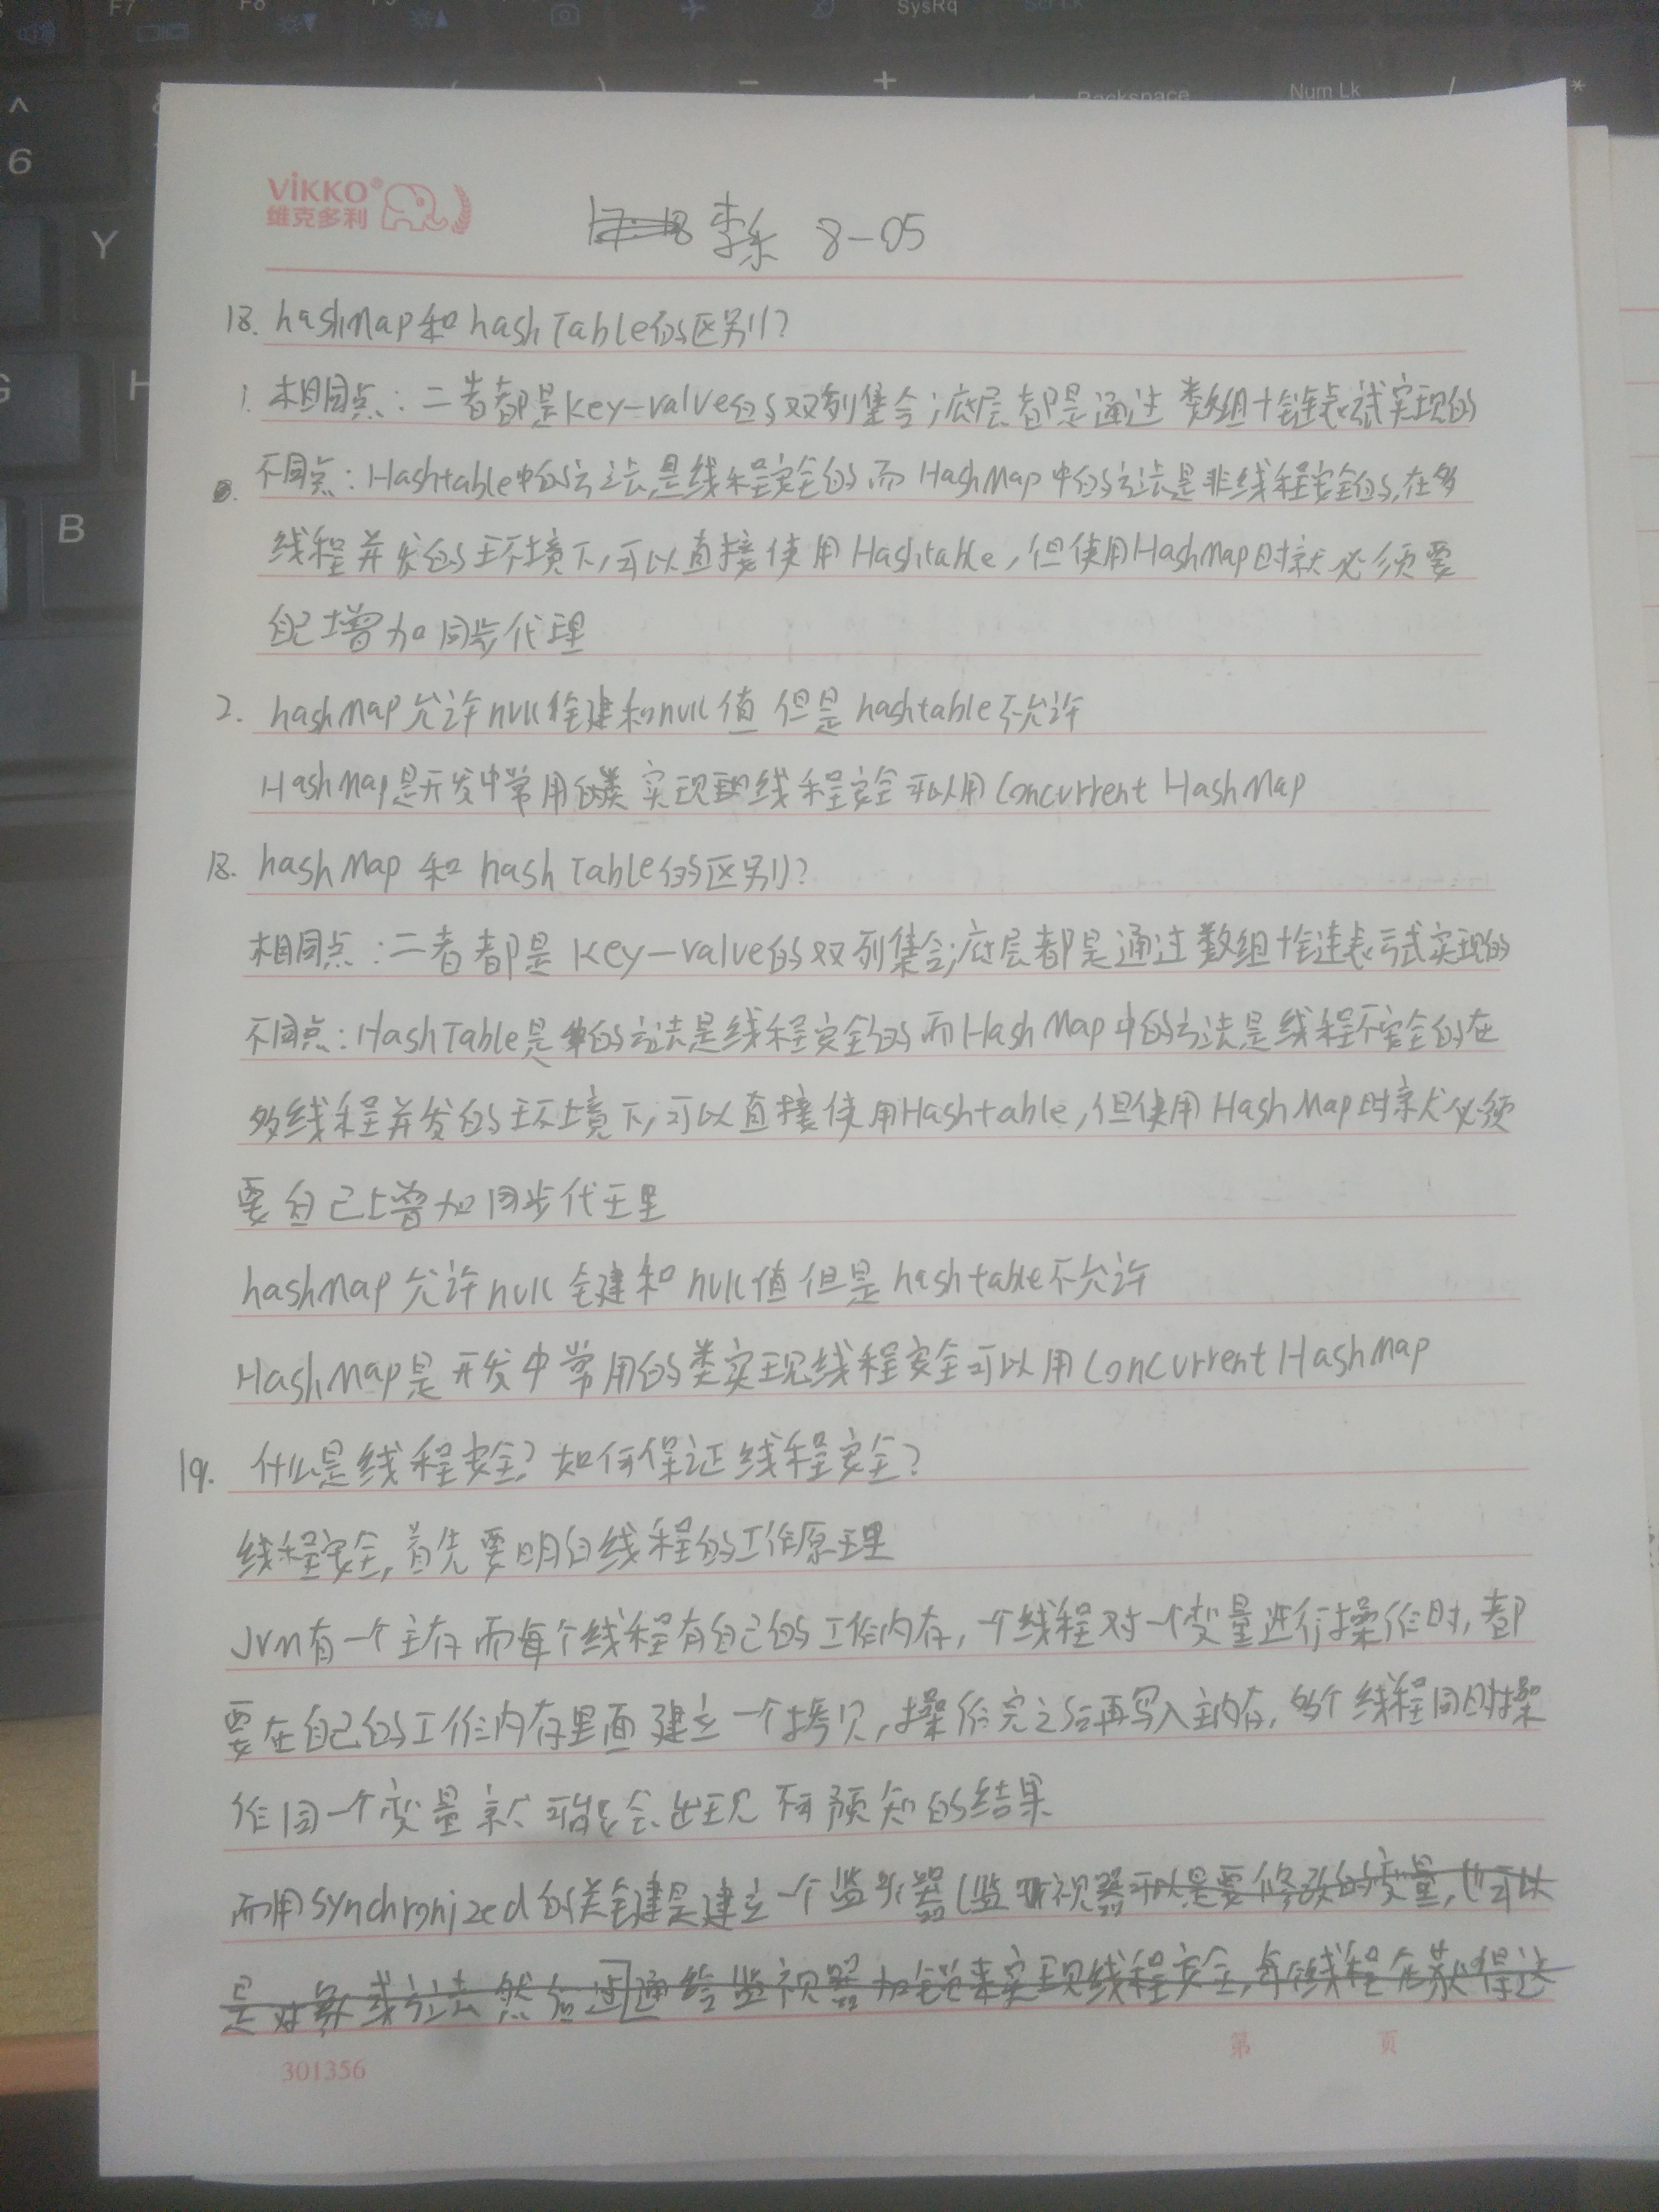 F7
F8
SysRq
Scr Lk
Backspace
Num Lk
6
Y
G
H
B
ViKKO®
维克多利
李乐 8-05
18. hashMap和hashTable的区别?
1. 相同点:二者都是key-value的双列集合;底层都是通过 数组+链表试实现的
不同点:Hashtable中的方法是线程安全的而HashMap中的方法是非线程安全的,在多
线程并发的环境下,可以直接使用Hashtable,但使用HashMap时就必须要
自己增加同步代理
2. hashMap允许null健和null值 但是hashtable不允许
HashMap是开发中常用的类 实现 线程安全可以用Concurrent HashMap
18. hashMap 和 hashTable的区别?
相同点:二者都是 key-value的双列集合;底层都是通过数组+链表试实现的
不同点:HashTable是 的方法是线程安全的而HashMap中的方法是线程不安全的在
多线程并发的环境下,可以直接使用Hashtable,但使用HashMap时就必须
要自己增加同步代理
hashMap允许null 键和null值但是hashtable不允许
HashMap是开发中常用的类实现线程安全可以用Concurrent HashMap
19. 什么是线程安全?如何保证线程安全?
线程安全,首先要明白线程的工作原理
Jvm有一个主存而每个线程有自己的工作内存,一个线程对一个变量进行操作时,都
要在自己的工作内存里面建立一个拷贝,操作完之后再写入主内存,多个线程同时操
作同一个变量就可能会出现不可预知的结果
而用synchronized的关键是建立一个监 器(监 视器可以是要修改的变量,也可以
是对象或方法 然后 通 给监视器加锁来实现线程安全,每个线程在获得这
301356
第 页